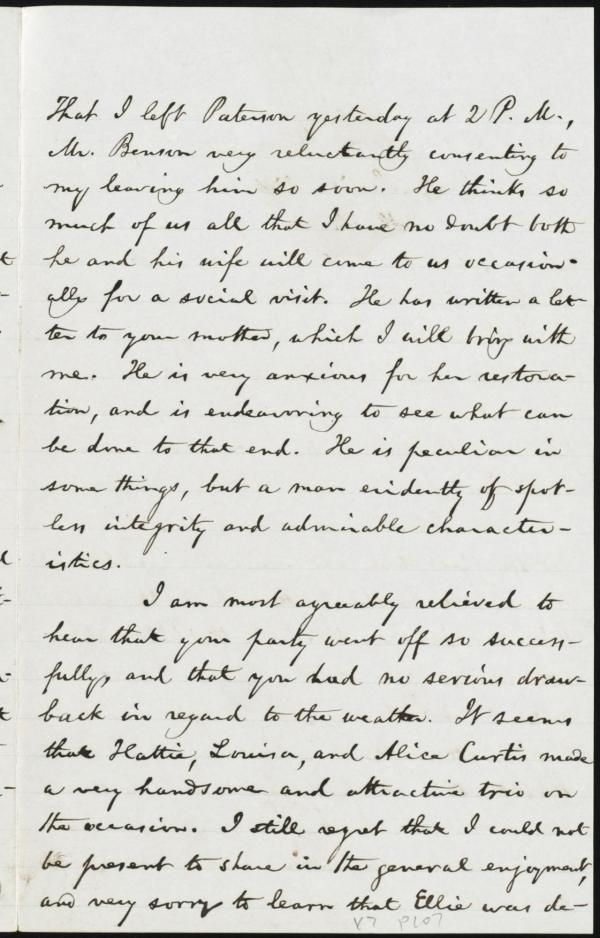 That I left Paterson yesterday at 2 P. M.,
Mr. Benson very reluctantly consenting to
my leaving him so soon. He thinks so
much of us all that I have no doubt both
he and his wife will come to us occasion-
ally for a social visit. He has written a let-
ter to your mother, which I will bring with
me. He is very anxious for her restora-
tion, and is endeavoring to see what can
be done to that end. He is peculiar in
some things, but a man evidently of spot-
less integrity and admirable character-
istics.
I am most agreeably relieved to
hear that your party went off so success-
fully, and that you had no serious draw-
back in regard to the weather. It seems
that Hattie, Louisa, and Alice Curtis made
a very handsome and attractive trio on
the occasion. I still regret that I could not
be present to share in the general enjoyment,
and very sorry to learn that Ellie was de-